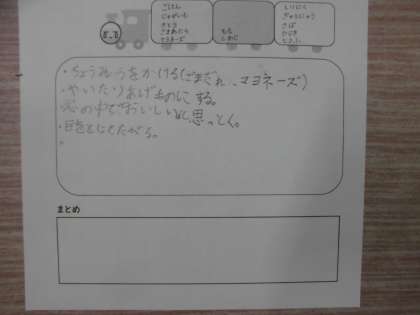 ごはん
じゃがいも
さとう
ごまあぶら
マヨネーズ
もも
とりにく
ぎゅうにゅう
さば
・ちょうみりょうをかける(ごまだれ、マヨネーズ)
・やいたりあげものにする。
心の中でおいしいと思っとく。
・目をとじてたべる。
まとめ